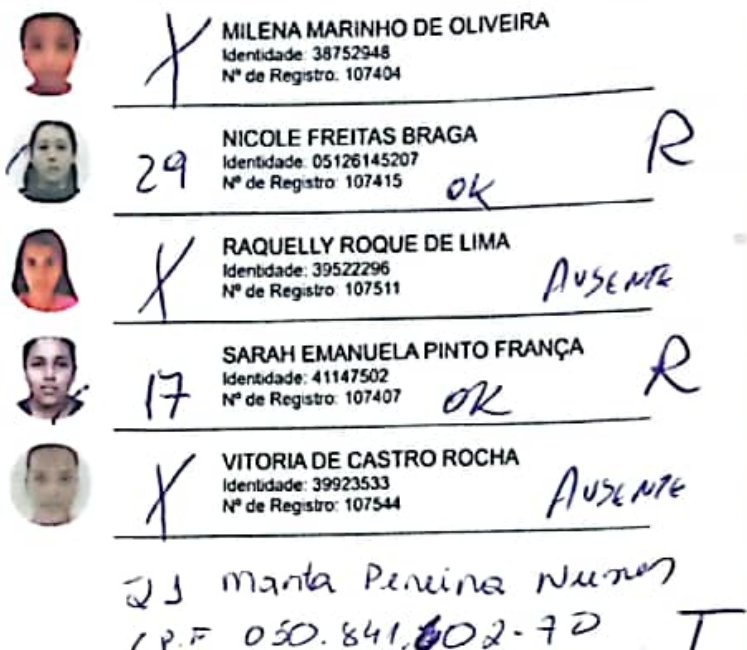 X MILENA MARINHO DE OLIVEIRA
Identidade: 38752948
Nº de Registro: 107404
NICOLE FREITAS BRAGA R
29 Identidade: 05126145207
Nº de Registro: 107415 OK
X RAQUELLY ROQUE DE LIMA
Identidade: 39522296 AUSENTE
Nº de Registro: 107511
SARAH EMANUELA PINTO FRANÇA R
17 Identidade: 41147502
Nº de Registro: 107407 OK
X VITORIA DE CASTRO ROCHA
Identidade: 39923533 AUSENTE
Nº de Registro: 107544
21 Manta Pereira Nunes
C.P.F 050.841.602-70 T